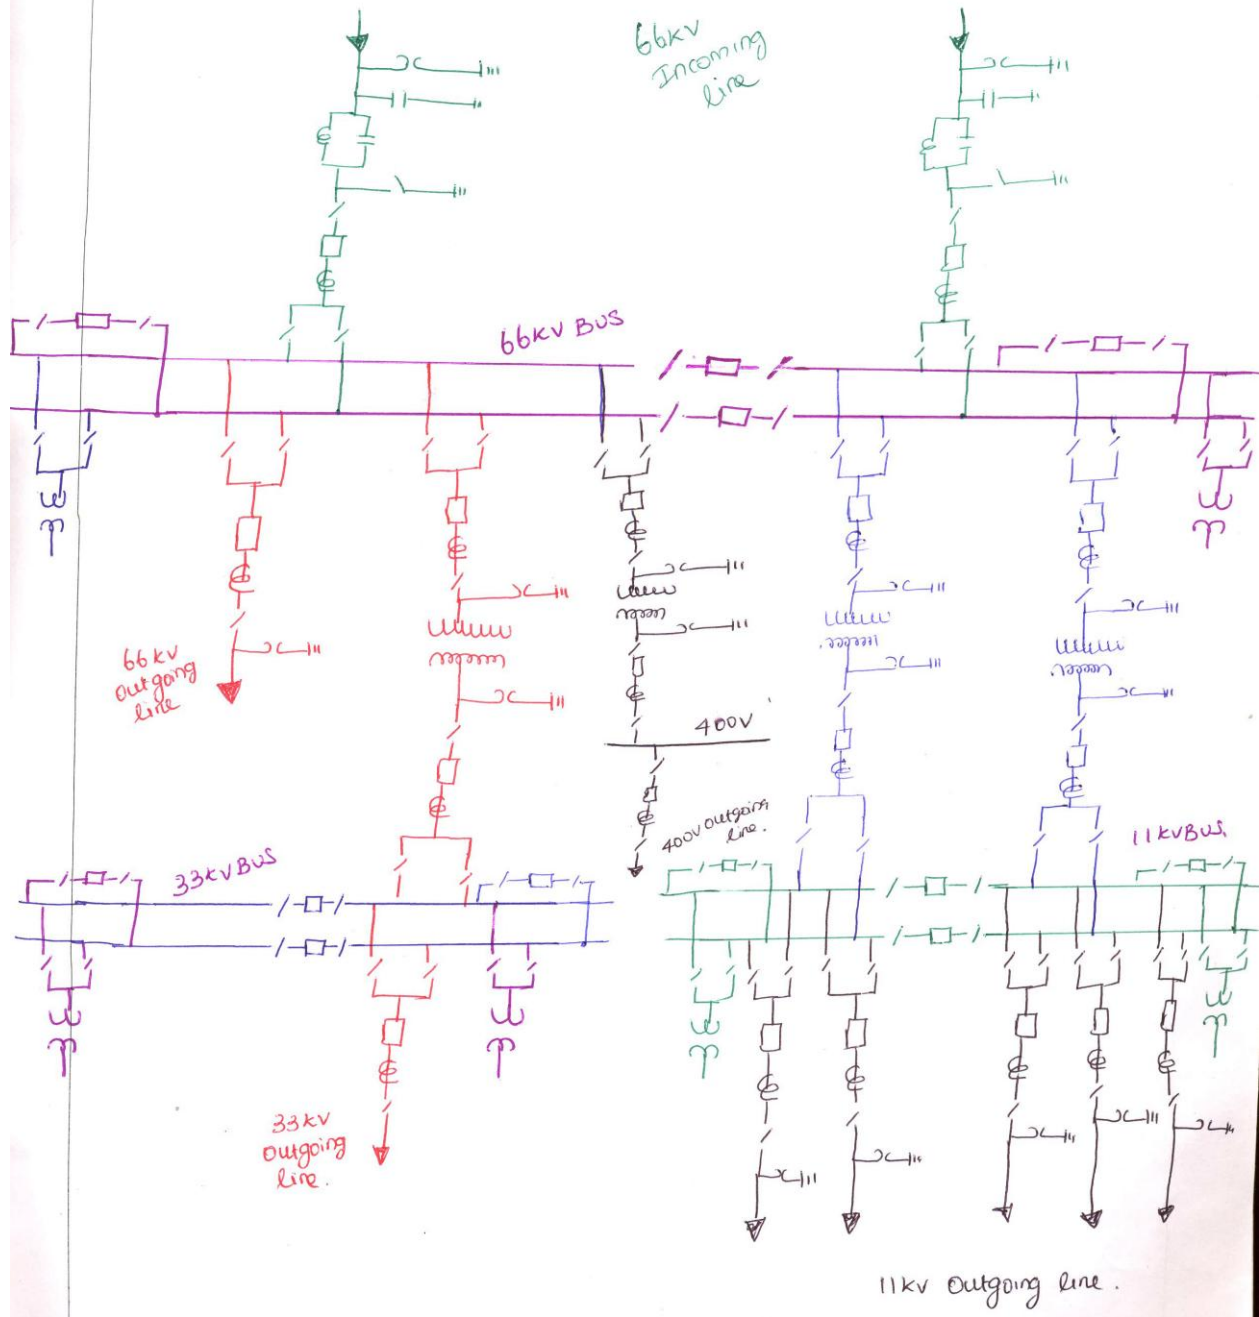 66KV
Incoming
line
66KV BUS
66KV
Outgoing
line
400V
400V Outgoing
line.
33KV BUS
11KV BUS.
33KV
Outgoing
line.
11KV Outgoing line.